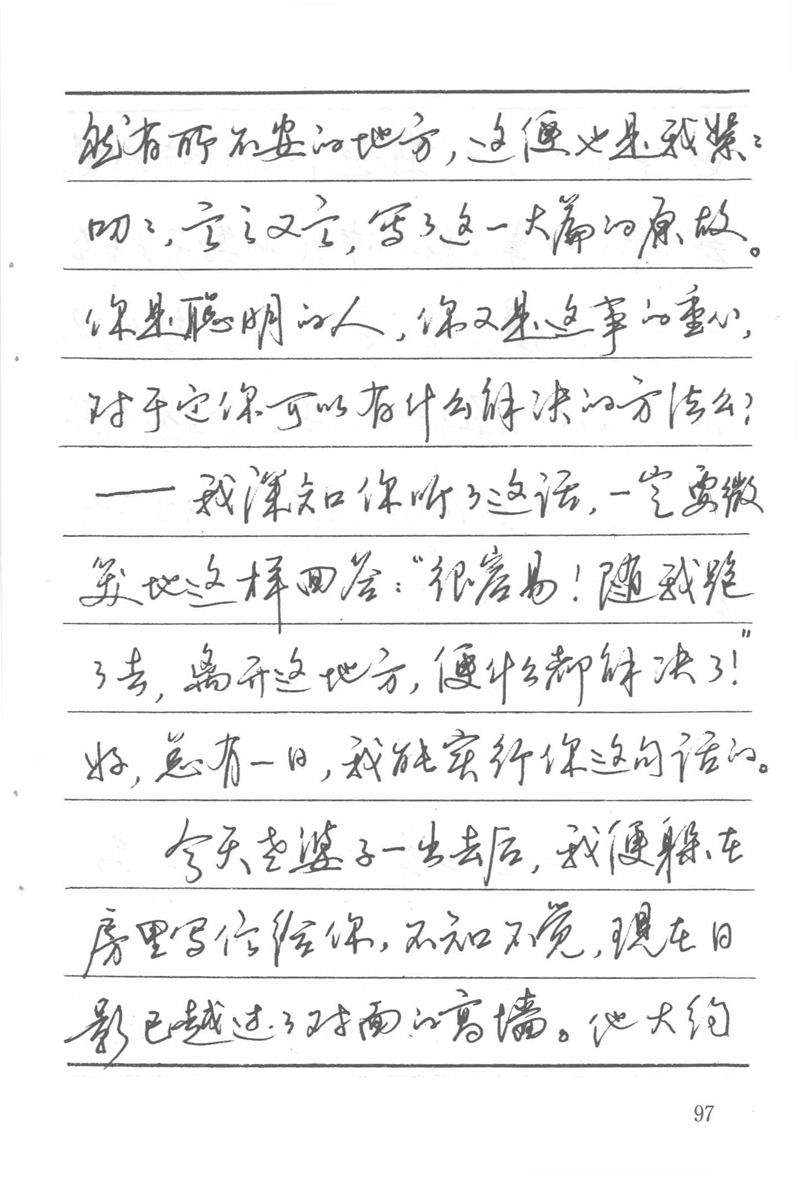 然有所不安的地方，这便也是我絮：
叨：，言之又言，写了这一大篇的原故。
你是聪明的人，你又是这事的重心，
对于它你可以有什么解决的方法么？
——我深知你听了这话，一定要微
笑地这样回答：“很容易！随我跑
了去，离开这地方，便什么都解决了！”
好，总有一日，我能实行你这句话的。
今天老婆子一出去后，我便躲在
房里写信给你，不知不觉，现在日
影已越过了对面的高墙。他大约
97